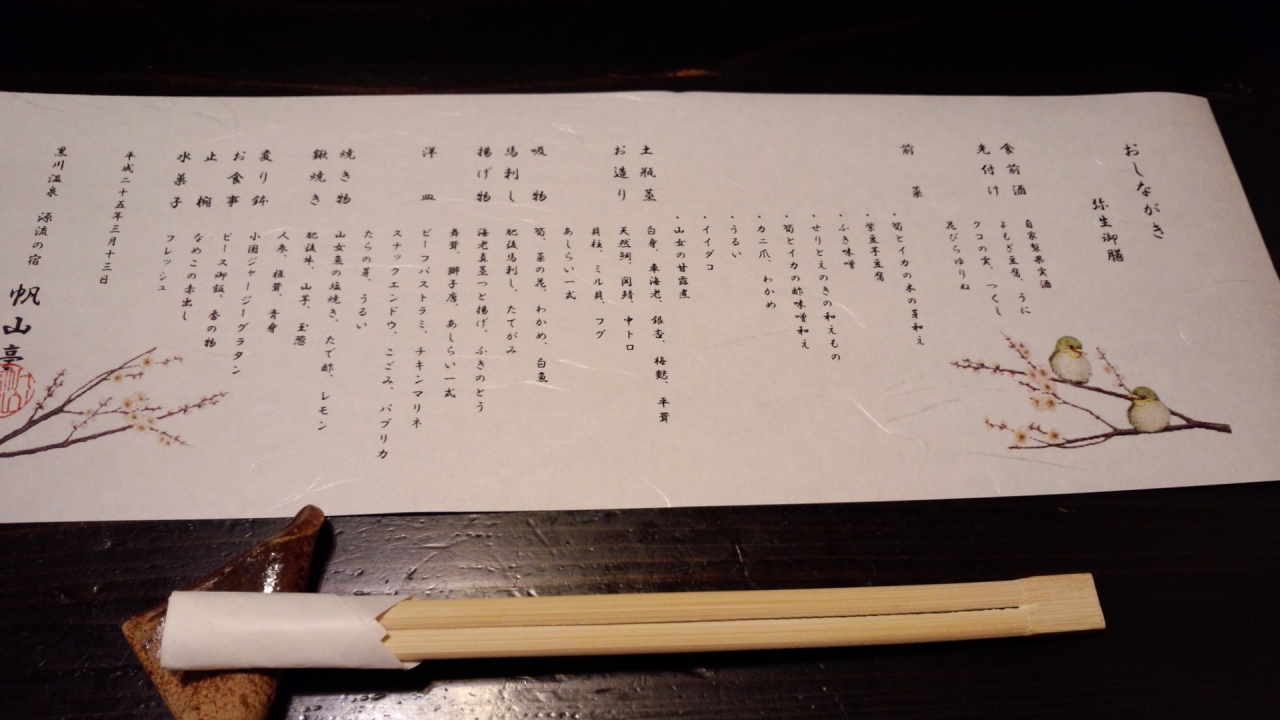 おしながき
弥生御膳
食前酒 自家製果実酒
先付け よもぎ豆腐、うに
クコの実、つくし
花びらゆりね
前菜
・筍とイカの木の芽和え
・紫豆芋豆腐
・ふき味噌
・せりとえのきの和えもの
・筍とイカの酢味噌和え
・カニ爪、わかめ
・うるい
・イイダコ
・山女の甘露煮
土瓶蒸 白身、車海老、銀杏、梅麩、平茸
お造り 天然鯛、関鯖、中トロ
貝柱、ミル貝、フグ
あしらい一式
吸物 筍、菜の花、わかめ、白魚
馬刺し 肥後馬刺し、たてがみ
揚げ物 海老真蒸つと揚げ、ふきのとう
舞茸、獅子唐、あしらい一式
洋皿 ビーフパストラミ、チキンマリネ
スナックエンドウ、こごみ、パプリカ
たらの芽、うるい
焼き物 山女魚の塩焼き、たで酢、レモン
鍬焼き 肥後牛、山芋、玉葱
人参、椎茸、青身
変り鉢 小国ジャージーグラタン
お食事 ピース御飯、香の物
止椀 なめこの赤出し
水菓子 フレッシュ
平成二十五年三月十三日
黒川温泉 源流の宿 帆山亭